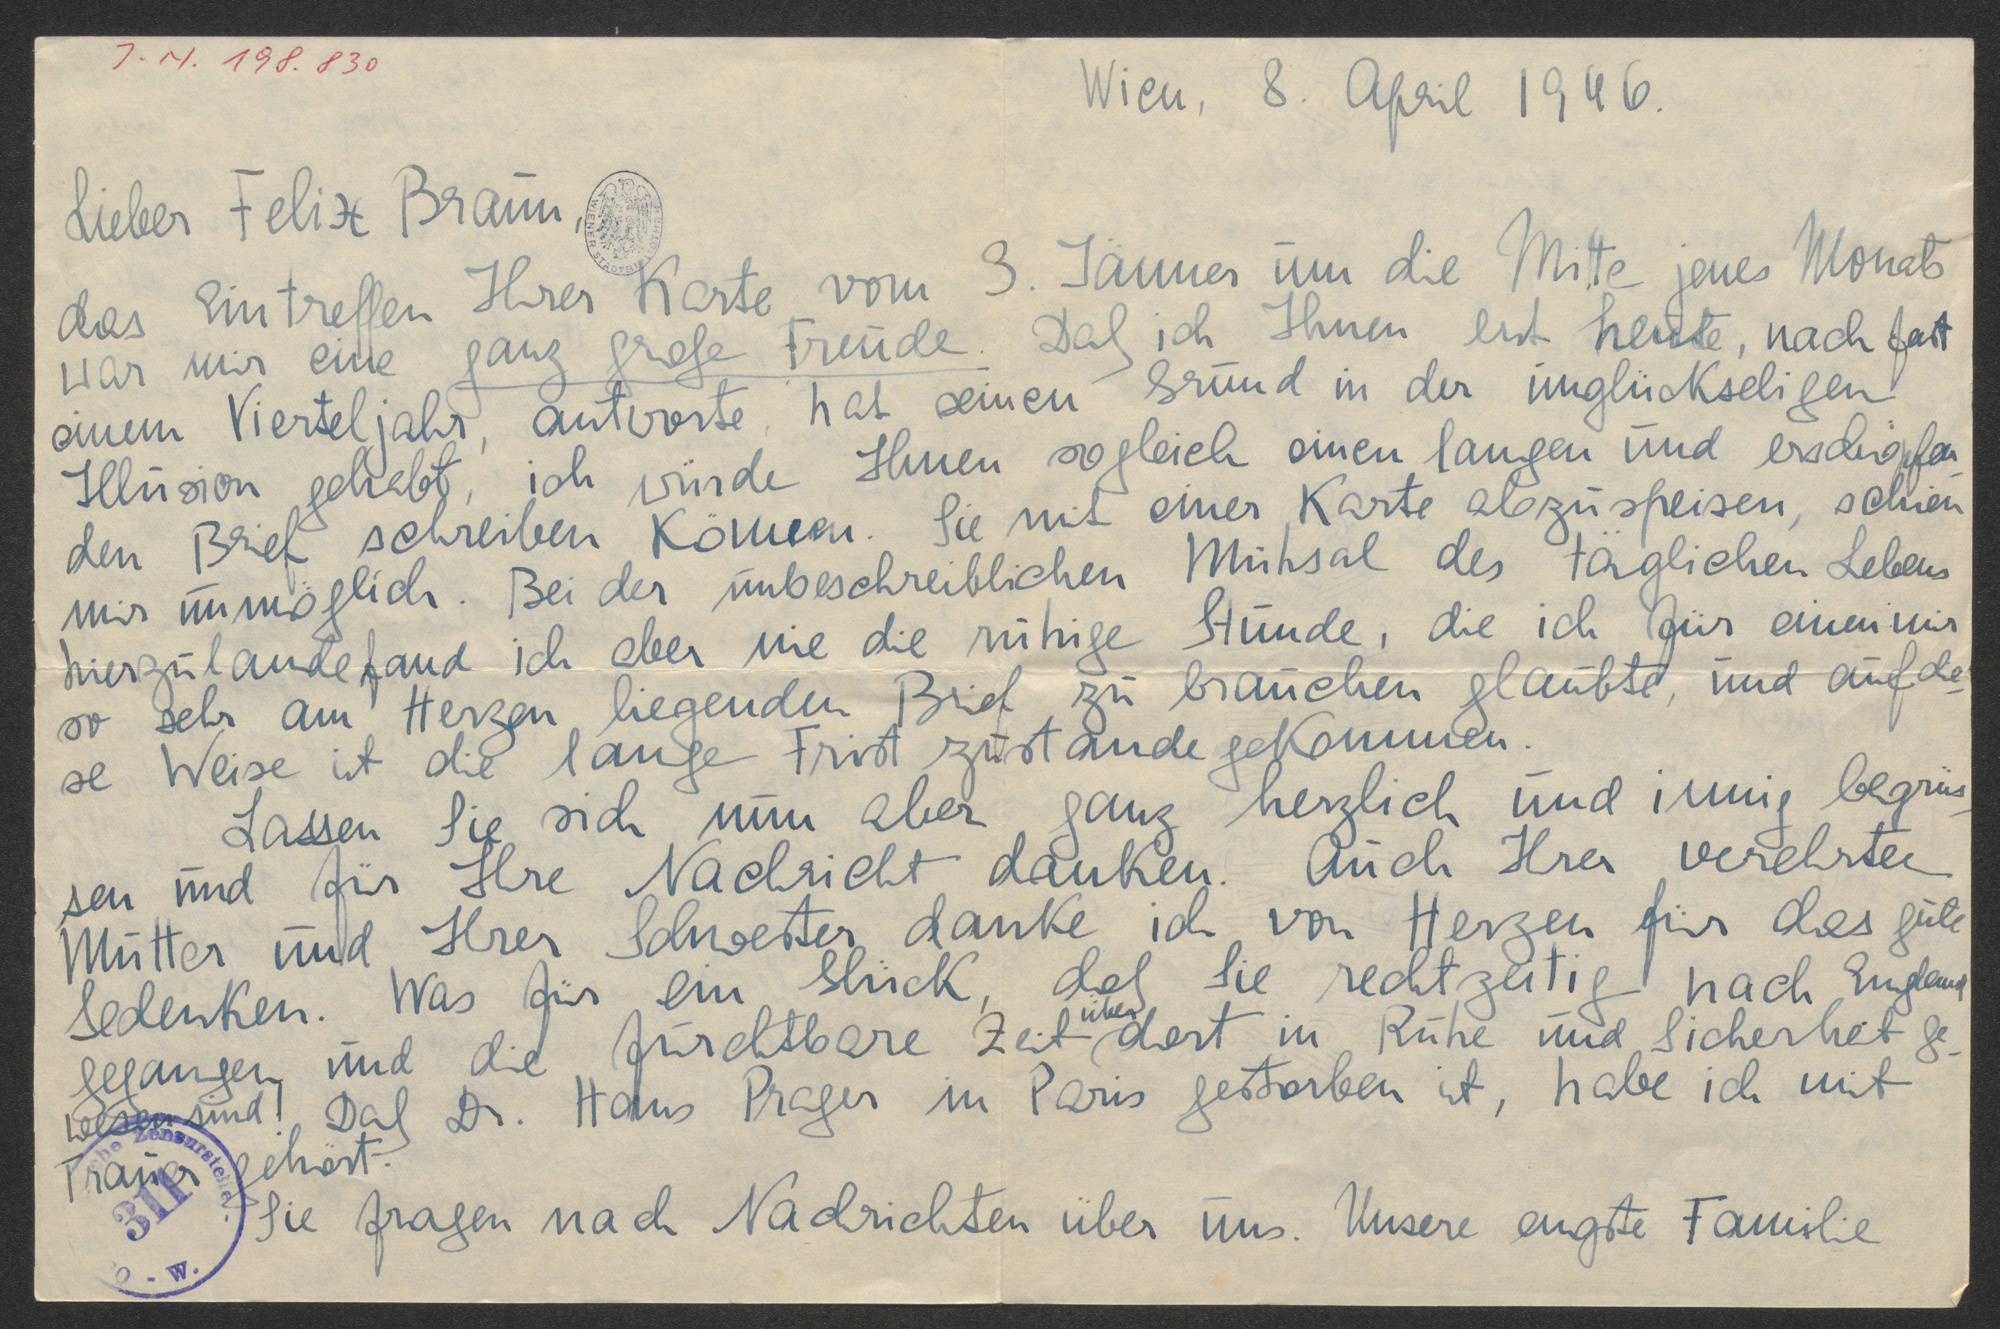 J. N. 198.830
Wien, 8. April 1946.
Lieber Felix Braun,
WIENER STADTBIBLIOTHEK
das Eintreffen Ihrer Karte vom 3. Jänner um die Mitte jenes Monats
war mir eine ganz große Freude. Daß ich Ihnen erst heute, nach fast
einem Vierteljahr, antworte, hat seinen Grund in der unglückseligen
Illusion gehabt, ich würde Ihnen sogleich einen langen und erschöpfen-
den Brief schreiben können. Sie mit einer Karte abzuspeisen, schien
mir unmöglich. Bei der unbeschreiblichen Mühsal des täglichen Lebens
hierzulande fand ich aber nie die ruhige Stunde, die ich für einen mir
so sehr am Herzen liegenden Brief zu brauchen glaubte, und auf die-
se Weise ist die lange Frist zustande gekommen.
Lassen Sie sich nun aber ganz herzlich und innig begrüs-
sen und für Ihre Nachricht danken. Auch Ihrer verehrten
Mutter und Ihrer Schwester danke ich von Herzen für das gute
Gedenken. Was für ein Glück, daß Sie rechtzeitig nach England
gegangen und die furchtbare Zeit über dort in Ruhe und Sicherheit ge-
wesen sind! Daß Dr. Hans Prager in Paris gestorben ist, habe ich mit
Trauer gehört.
Sie fragen nach Nachrichten über uns. Unsere engste Familie
Zensurstelle
311
- W.